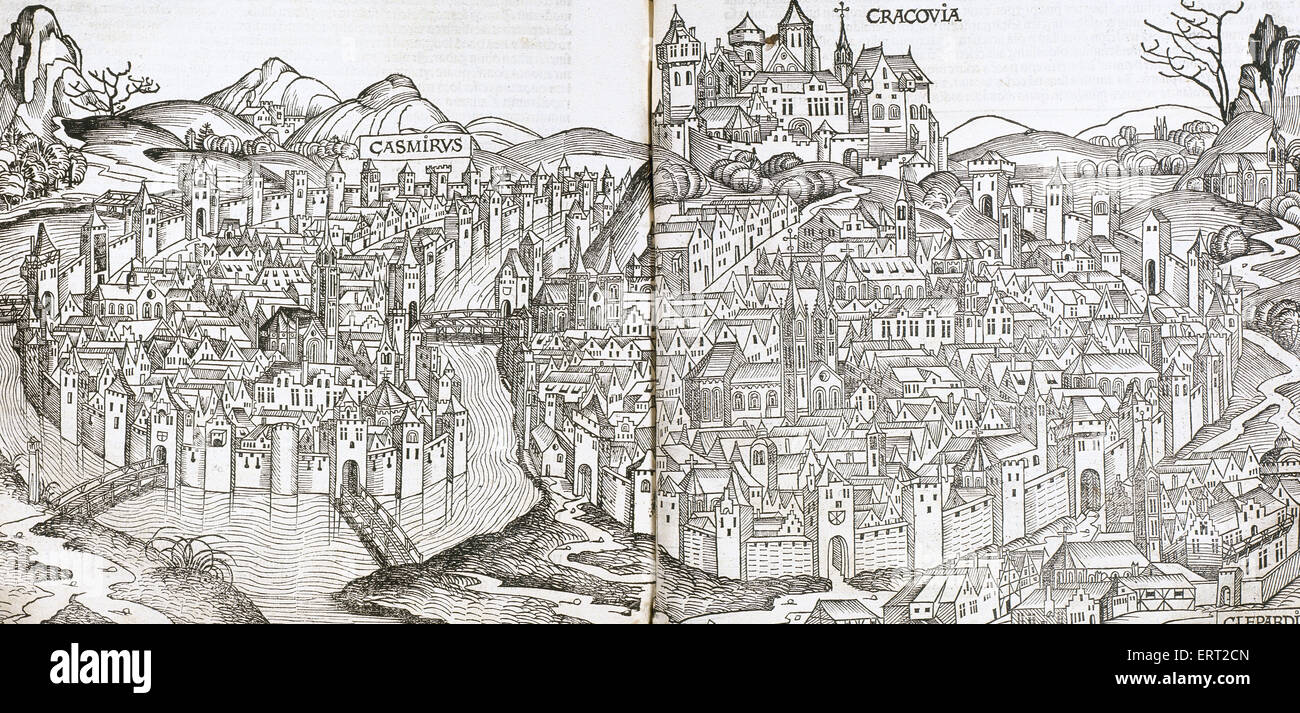 CRACOVIA
CASMIRVS
CLEPARDI
alamy
Image ID: ERT2CN
www.alamy.com